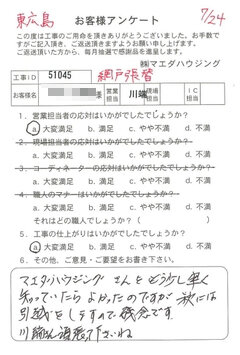 東広島
7/24
お客様アンケート
この度は工事のご用命を頂きありがとうございました。お手数で
すがご記入頂き、ご返送頂きますようお願い申し上げます。
ご返送頂いた方から、毎月抽選で感謝品を進呈します。
㈱マエダハウジング
工事ID 51045 網戸張替
お客様名 様 営業担当 川端 現場担当 IC担当
1. 営業担当者の応対はいかがでしたでしょうか?
a. 大変満足 b. 満足 c. やや不満 d. 不満
2. 現場担当者の応対はいかがでしたでしょうか?
a. 大変満足 b. 満足 c. やや不満 d. 不満
3. コーディネーターの応対はいかがでしたでしょうか?
a. 大変満足 b. 満足 c. やや不満 d. 不満
4. 職人のマナーはいかがでしたでしょうか?
a. 大変満足 b. 満足 c. やや不満 d. 不満
それはどの職人でしょうか?(
5. 工事の仕上がりはいかがでしたでしょうか?
a. 大変満足 b. 満足 c. やや不満 d. 不満
6. その他、ご意見・ご要望をお書き下さい。
マエダハウジング さんをもう少し早く
知っていたら よかったのですが 秋には
引越をしますので残念です
川端さん 頑張って下さいね